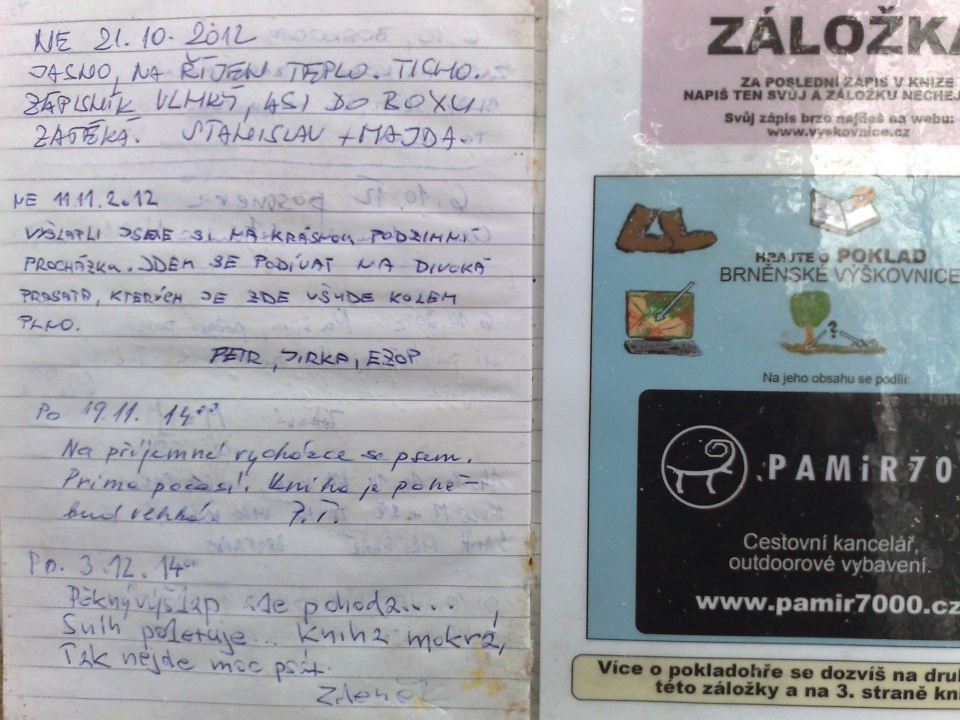 NE 21.10.2012
JASNO, NA ŘÍJEN TEPLO. TICHO.
ZÁPISNÍK VLHKÝ, ASI DO BOXU
ZATÉKÁ. STANISLAV + MAJDA.
NE 11.11.2012
VYŠLAPLI JSME SI NA KRÁSNOU PODZIMNÍ
PROCHÁZKU. JDEM SE PODÍVAT NA DIVOKÁ
PRASATA, KTERÝCH JE ZDE VŠUDE KOLEM
PLNO.
PETR, JIRKA, EZOP
Po 19.11. 14⁰⁰
Na příjemné vycházce se psem.
Prima počasí. Kniha je poně-
kud vlhká.
Po. 3.12. 14⁰⁰
Pěkný výšlap ale pohoda....
Sníh poletuje... Kniha mokrá,
Tak nejde moc psát.
Zdeně
ZÁLOŽKA
ZA POSLEDNÍ ZÁPIS V KNIZE
NAPIŠ TEN SVŮJ A ZÁLOŽKU NECHEJ
Svůj zápis brzo najdeš na webu:
www.vyskovnice.cz
HRAJTE O POKLAD
BRNĚNSKÉ VÝŠKOVNICE
?
Na jeho obsahu se podílí:
PAMiR70
Cestovní kancelář,
outdoorové vybavení.
www.pamir7000.cz
Více o pokladohře se dozvíš na dru
této záložky a na 3. straně kni